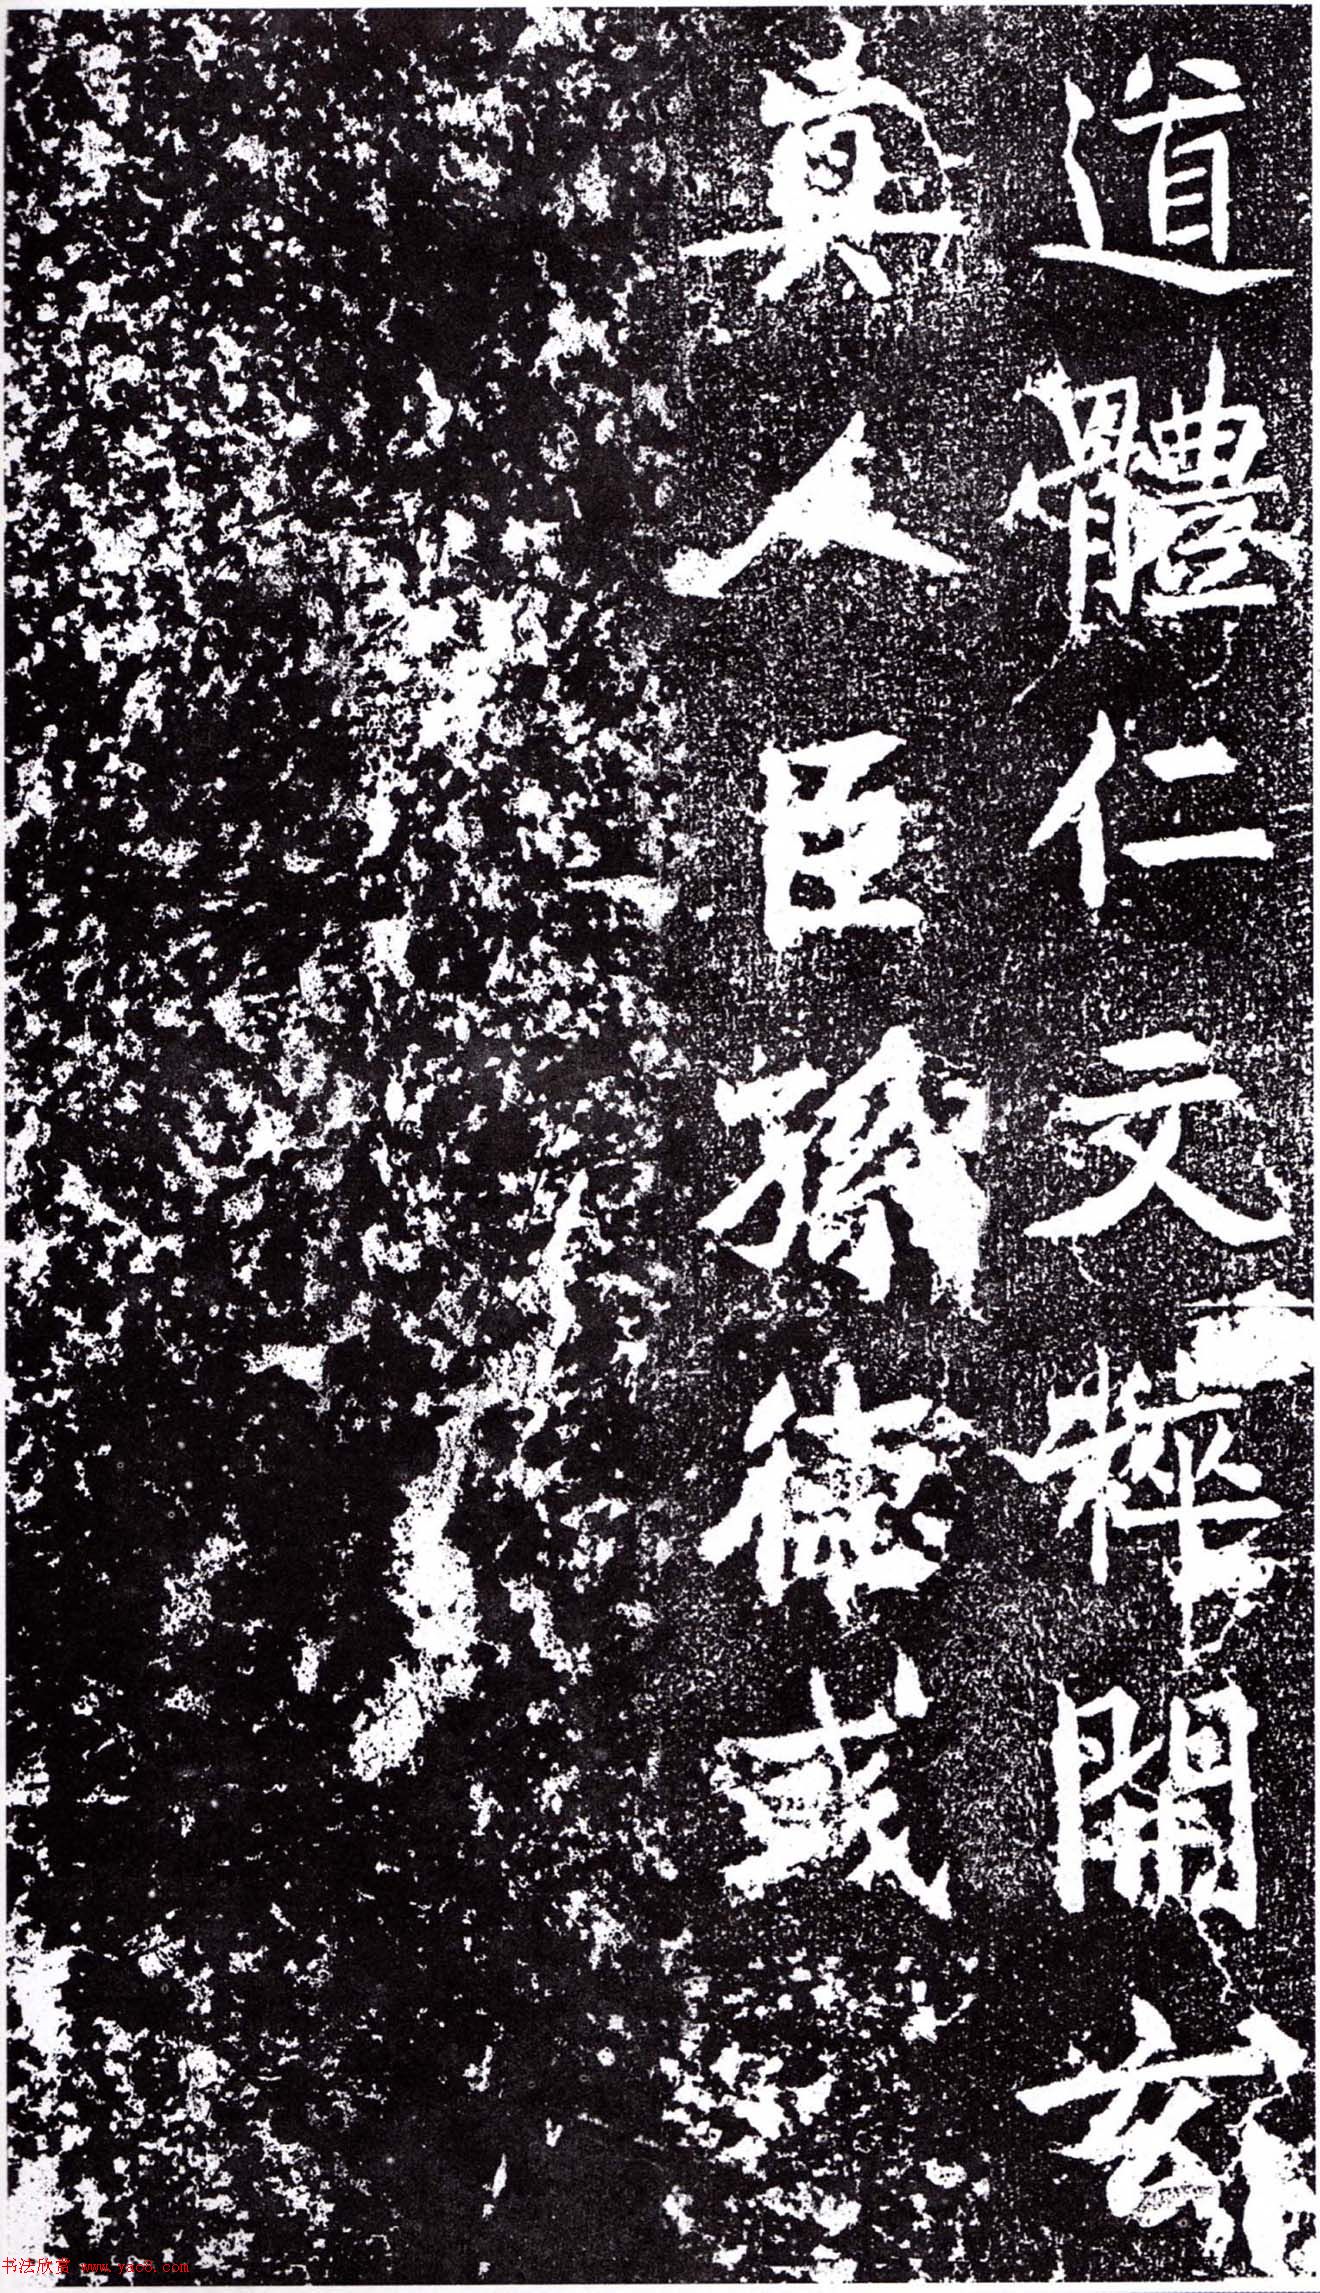 道體仁文粹開玄
真人臣孫德彧
书法欣赏 www.yac8.com